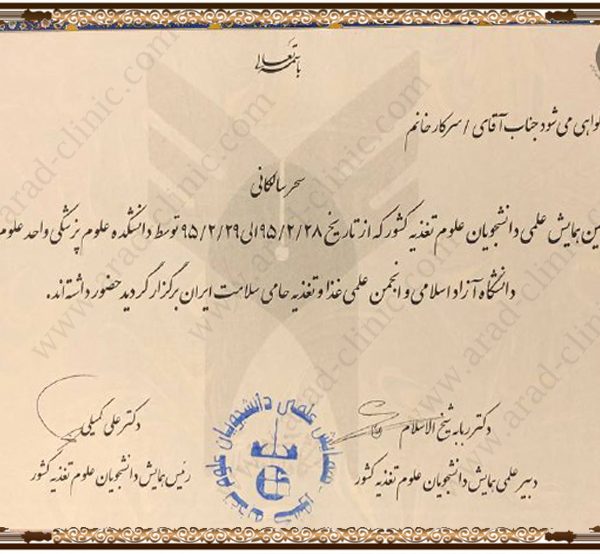 باسمه تعالی
گواهی می شود جناب آقای / سرکار خانم
سحر سالکانی
ین همایش علمی دانشجویان علوم تغذیه کشور که از تاریخ ۹۵/۲/۲۸ الی ۹۵/۲/۲۹ توسط دانشکده علوم پزشکی واحد علوم
دانشگاه آزاد اسلامی و انجمن علمی غذا و تغذیه حامی سلامت ایران برگزار گردید حضور داشته‌اند.
دکتر ربابه شیخ الاسلام
دبیر علمی همایش دانشجویان علوم تغذیه کشور
دکتر علی کمیلی
رئیس همایش دانشجویان علوم تغذیه کشور
همایش علمی دانشجویان علوم تغذیه کشور
www.arad-clinic.com